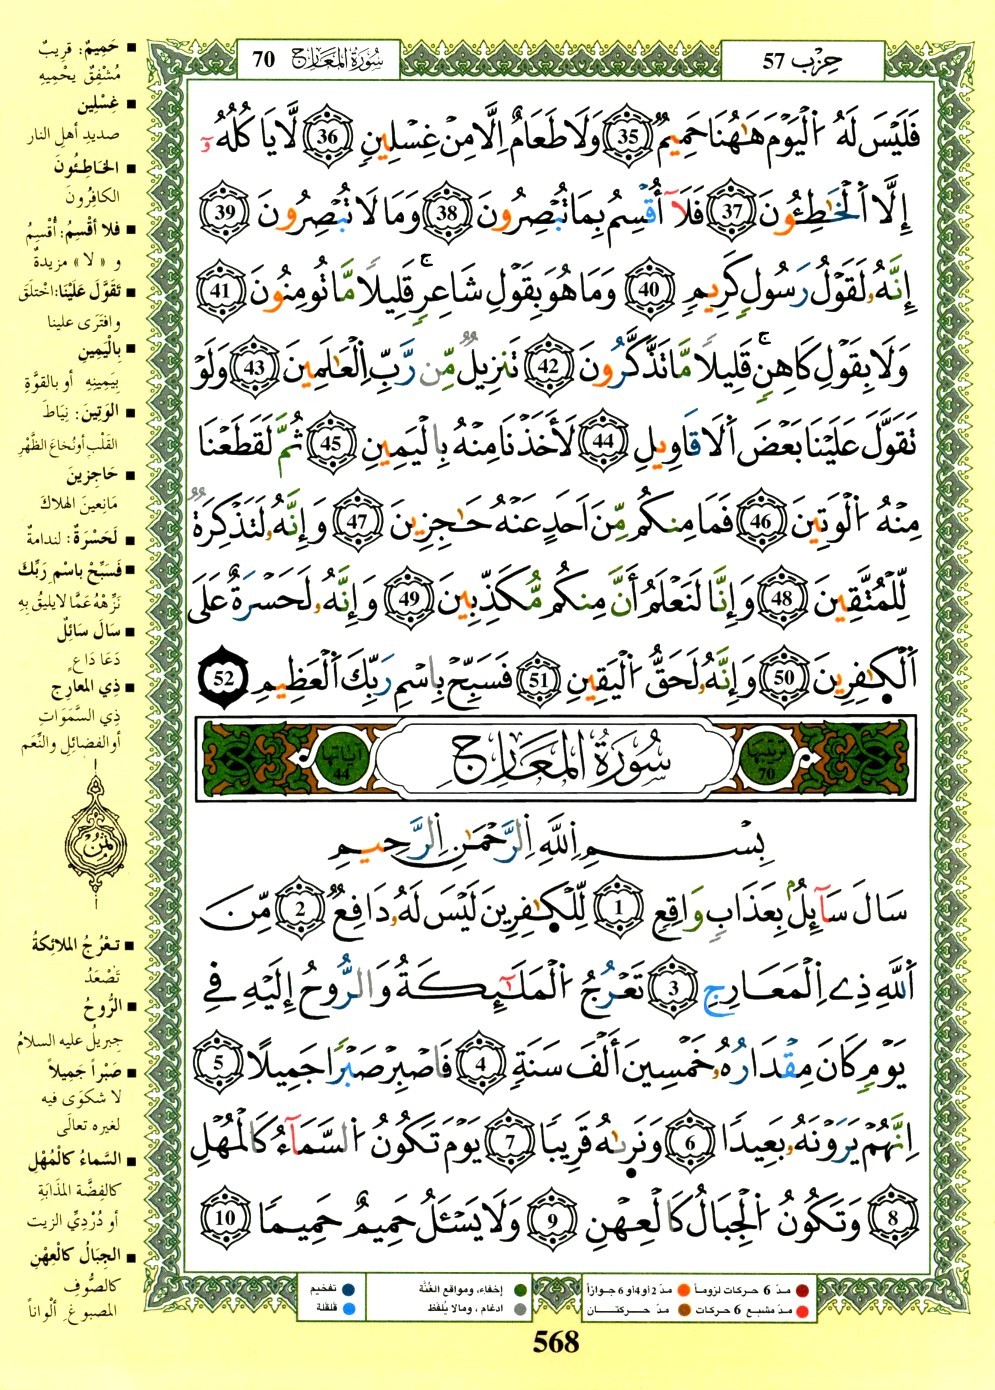 حِزْب 57
سُورَةُ المَعَارِج 70
فَلَيْسَ لَهُ اُ۬لْيَوْمَ هَٰهُنَا حَمِيمٌ 35 وَلَا طَعَامٌ اِلَّا مِنْ غِسْلِينٍ 36 لَّا يَاكُلُهُۥٓ
إِلَّا اَ۬لْخَٰطِـُٔونَ 37 فَلَآ أُقْسِمُ بِمَا تُبْصِرُونَ 38 وَمَا لَا تُبْصِرُونَ 39
إِنَّهُۥ لَقَوْلُ رَسُولٍ كَرِيمٍ 40 وَمَا هُوَ بِقَوْلِ شَاعِرٍ قَلِيلًا مَّا تُومِنُونَ 41
وَلَا بِقَوْلِ كَاهِنٍ قَلِيلًا مَّا تَذَّكَّرُونَ 42 تَنزِيلٌ مِّن رَّبِّ اِ۬لْعَٰلَمِينَ 43 وَلَوْ
تَقَوَّلَ عَلَيْنَا بَعْضَ اَ۬لَاقَاوِيلِ 44 لَأَخَذْنَا مِنْهُ بِالْيَمِينِ 45 ثُمَّ لَقَطَعْنَا
مِنْهُ اُ۬لْوَتِينَ 46 فَمَا مِنكُم مِّنَ اَحَدٍ عَنْهُ حَٰجِزِينَ 47 وَإِنَّهُۥ لَتَذْكِرَةٌ
لِّلْمُتَّقِينَ 48 وَإِنَّا لَنَعْلَمُ أَنَّ مِنكُم مُّكَذِّبِينَ 49 وَإِنَّهُۥ لَحَسْرَةٌ عَلَى
اَ۬لْكٰ۪فِرِينَ 50 وَإِنَّهُۥ لَحَقُّ اُ۬لْيَقِينِ 51 فَسَبِّحْ بِاسْمِ رَبِّكَ اَ۬لْعَظِيمِ 52
ترتيبها 70 سُورَةُ المَعَارِج آياتها 44
بِسْمِ اِ۬للَّهِ اِ۬لرَّحْمَٰنِ اِ۬لرَّحِيمِ
سَالَ سَآئِلٌۢ بِعَذَابٍ وَاقِعٍ 1 لِّلْكٰ۪فِرِينَ لَيْسَ لَهُۥ دَافِعٌ 2 مِّنَ
اَ۬للَّهِ ذِے اِ۬لْمَعَارِجِ 3 تَعْرُجُ اُ۬لْمَلَٰٓئِكَةُ وَالرُّوحُ إِلَيْهِ فِے
يَوْمٍ كَانَ مِقْدَارُهُۥ خَمْسِينَ أَلْفَ سَنَةٍ 4 فَاصْبِرْ صَبْرًا جَمِيلًا 5
اِنَّهُمْ يَرَوْنَهُۥ بَعِيدًا 6 وَنَر۪ىٰهُ قَرِيبًا 7 يَوْمَ تَكُونُ اُ۬لسَّمَآءُ كَالْمُهْلِ
8 وَتَكُونُ اُ۬لْجِبَالُ كَالْعِهْنِ 9 وَلَا يَسْـَٔلُ حَمِيمٌ حَمِيمًا 10
■ حَمِيمٌ: قريبٌ
مُشْفِقٌ يحْمِيهِ
■ غِسْلِين
صديدِ أهلِ النار
■ الخاطِئُونَ
الكافِرُونَ
■ فلا أُقْسِمُ: أُقْسِمُ
و «لا» مزيدةٌ
■ تَقَوَّلَ عَلَيْنَا: اخْتلَقَ
وافتَرَى علينا
■ بِالْيَمِينِ
بِيَمِينِهِ أو بالقوَّةِ
■ الوَتِينَ: نِيَاطَ
القَلْبِ أو نُخاعَ الظَّهْرِ
■ حَاجِزِينَ
مَانِعينَ الهلاكَ
■ لَحَسْرَةٌ: لندامةٌ
■ فَسَبِّحْ بِاسْمِ رَبِّكَ
نَزِّهْهُ عَمَّا لا يليقُ بِهِ
■ سَالَ سَائِلٌ
دَعَا دَاعٍ
■ ذِي المعارِجِ
ذِي السَّمَوَاتِ
أو الفضائِلِ والنِّعَم
ثمن
■ تَعْرُجُ الملائِكةُ
تَصْعَدُ
■ الرُّوحُ
جِبريلُ عليه السلامُ
■ صَبْراً جَمِيلاً
لا شكوَى فيه
لغيره تعالَى
■ السَّماءُ كالْمُهْلِ
كالفِضَّة المُذَابَةِ
أو دُرْدِيِّ الزيت
■ الجِبَالُ كَالْعِهْنِ
كالصُّوفِ
المصبوغِ ألْواناً
مدّ 6 حركات لزوماً
مدّ 2 أو 4 أو 6 جوازاً
إخفاء، ومواقع الغُنَّة
تفخيم
مدّ مشبع 6 حركات
مدّ حركتــان
ادغام، ومالا يُلفَظ
قلقلة
568